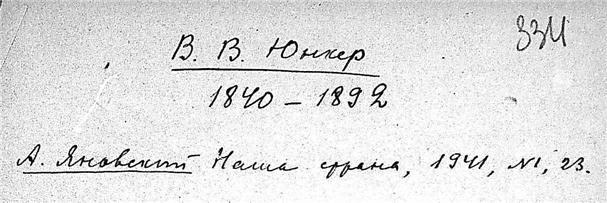 334
В. В. Юнкер
1840 – 1892
А. Яновский Наша страна, 1941, №1, 23.